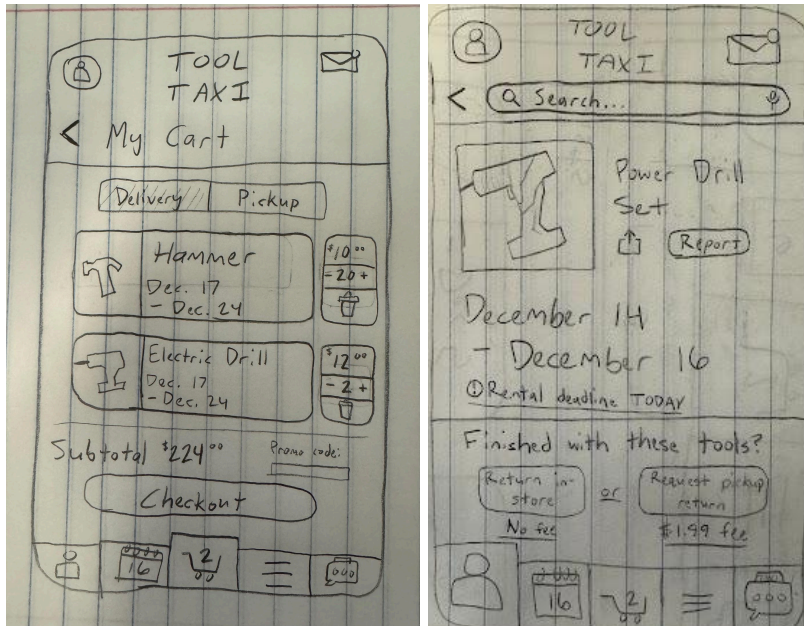 TOOL
TAXI
My Cart
Delivery Pickup
Hammer
Dec. 17
- Dec. 24
$10.00
- 20 +
Electric Drill
Dec. 17
- Dec. 24
$12.00
- 2 +
Subtotal $224.00
Promo code:
Checkout
16
2
TOOL
TAXI
Search...
Power Drill
Set
Report
December 14
- December 16
Rental deadline TODAY
Finished with these tools?
Return in-
store
or
Request pickup
return
No fee
$1.99 fee
16
2